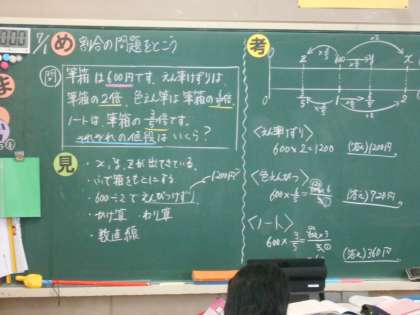 7/1
め 割合の問題をとこう
問 筆箱は600円です。えんぴつけずりは
筆箱の2倍、色えん筆は筆箱の6/5倍です。
ノートは、筆箱の3/5倍です。
それぞれの値段はいくら?
見
・x、y、zが出てきている。
ふで箱をもとにする
・600÷2でえんぴつけずり
(1200円)
・かけ算 わり算
・数直線
考
z 600 y x
0
0 3/5 1 6/5 2
<えん筆けずり>
600×2=1200
(答え)1200円
<色えんぴつ>
600×6/5=
(答え)720円
<ノート>
600×3/5=
(答え)360円